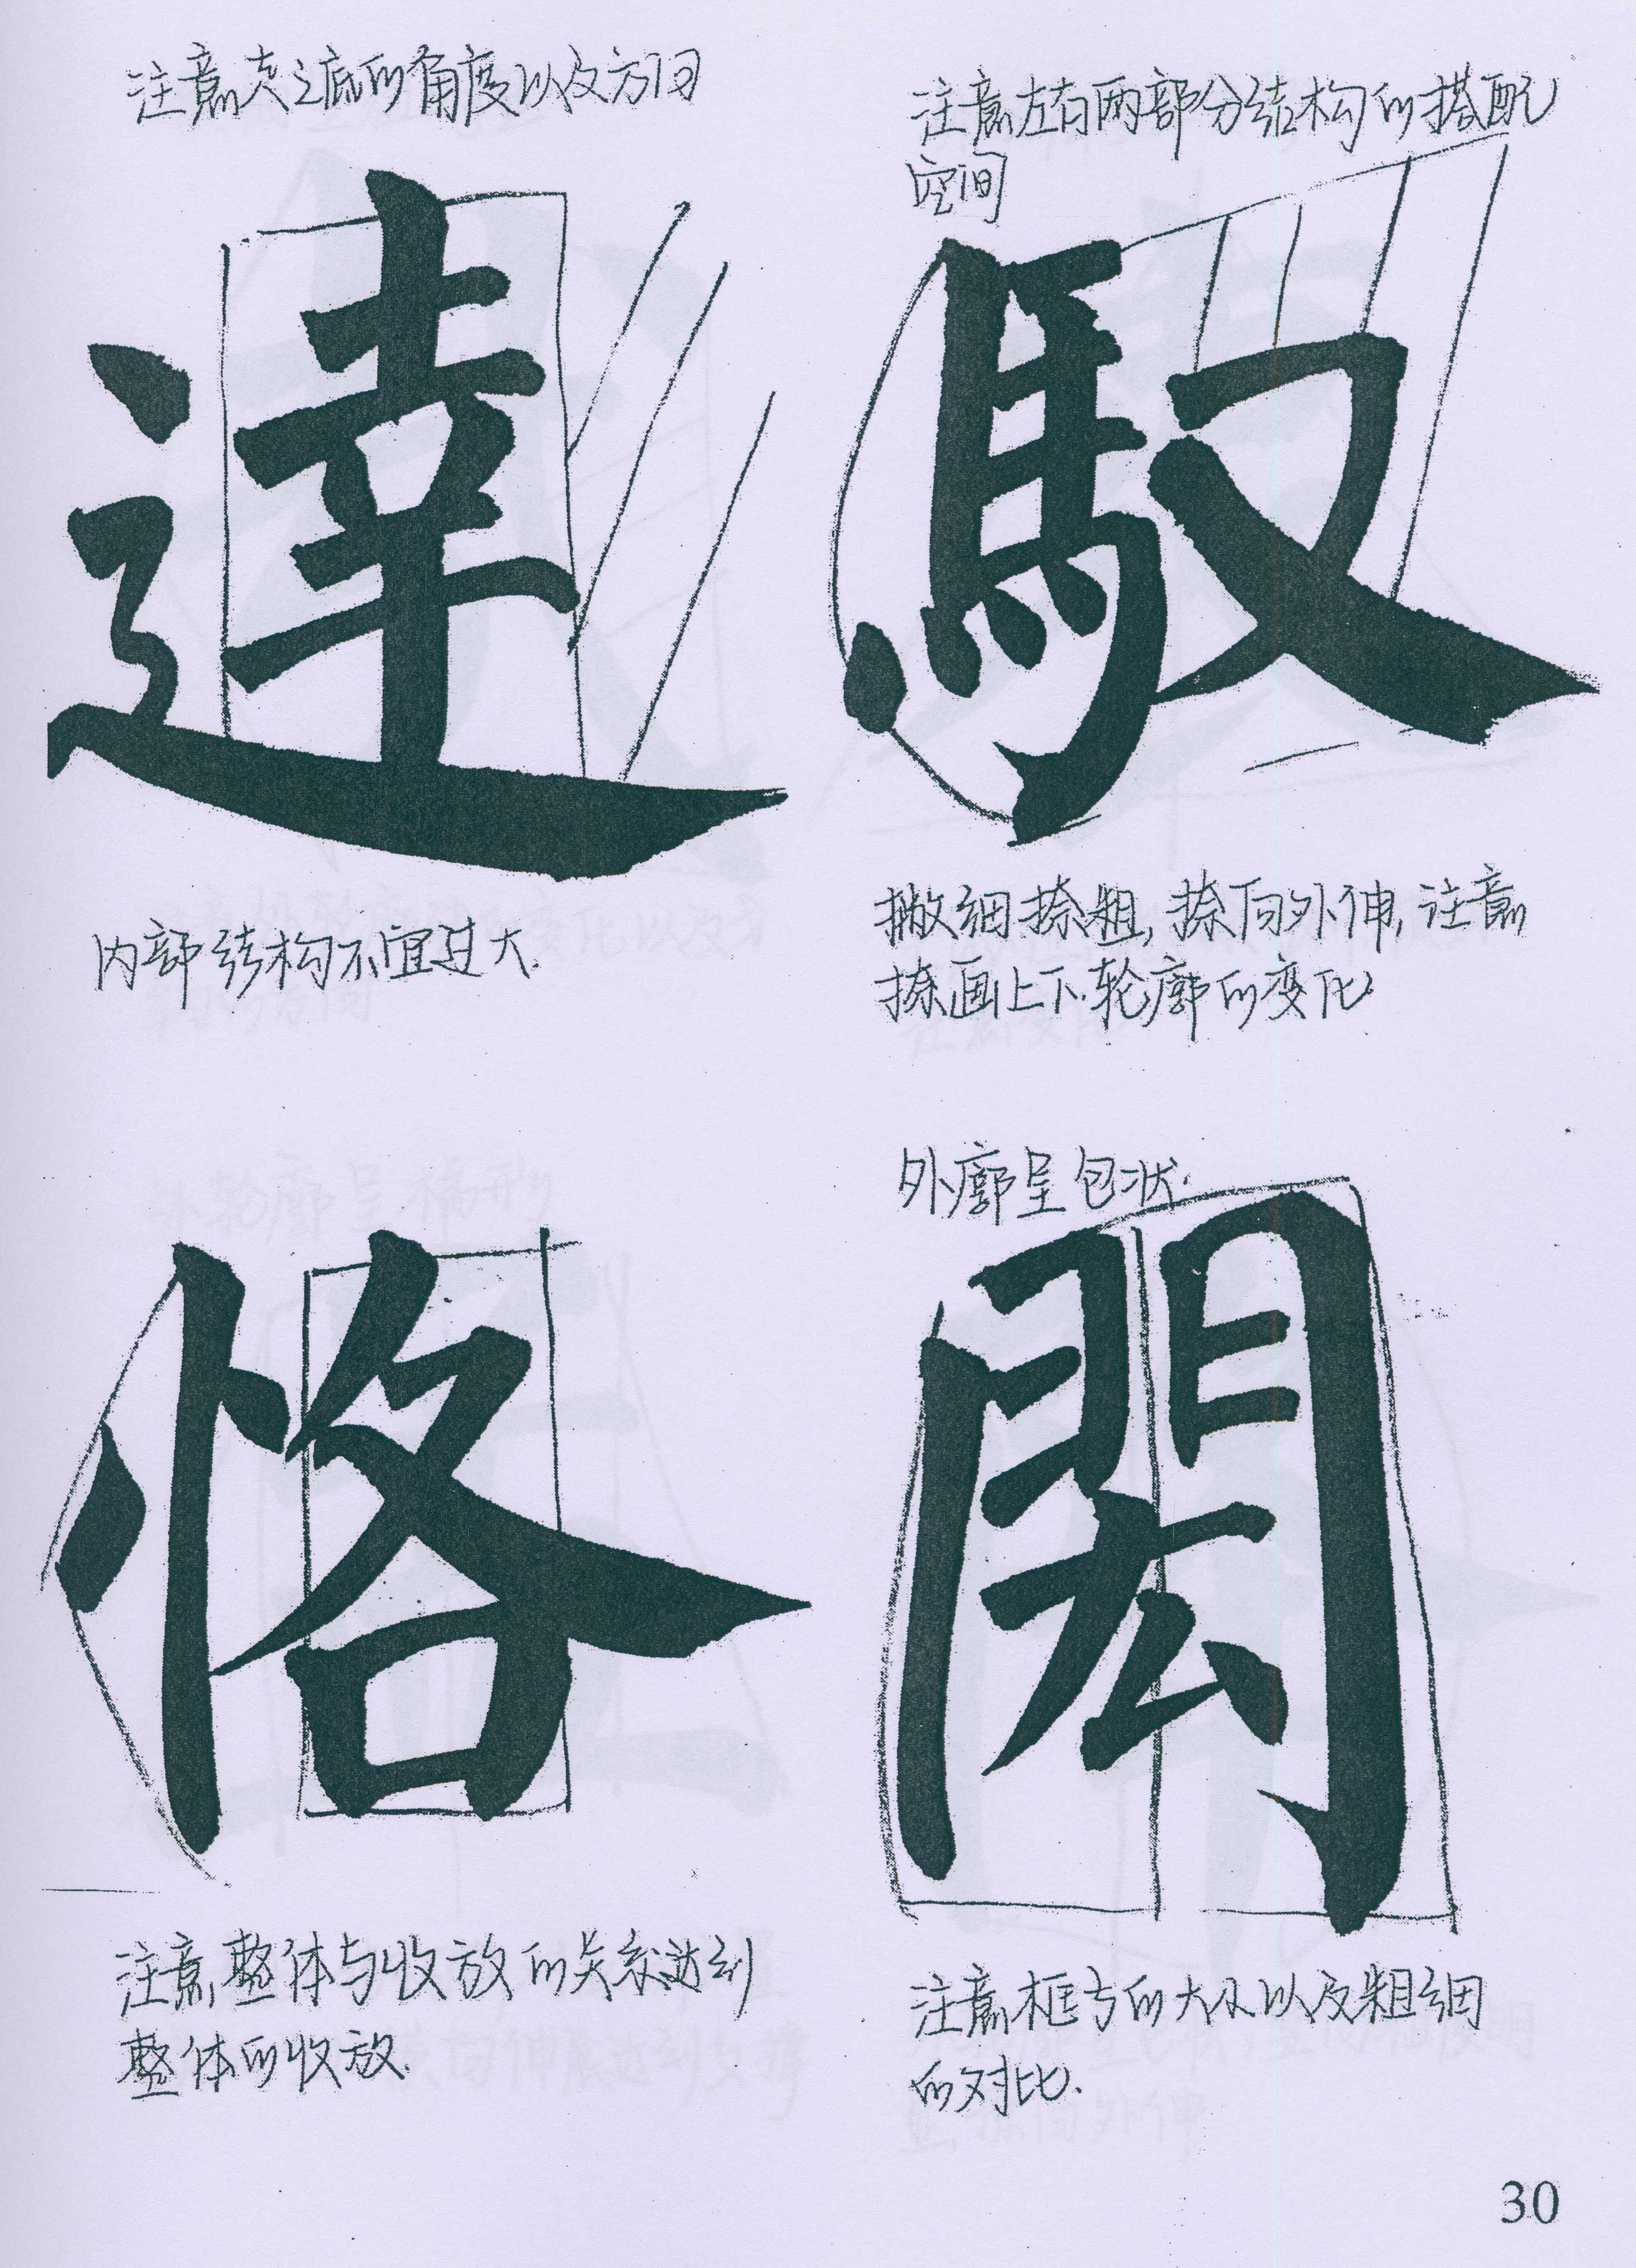 注意走之底的角度以及方向
達
内部结构不宜过大.
注意左右两部分结构的搭配
空间
馭
撇细捺粗,捺向外伸,注意
捺画上下轮廓的变化
恪
注意整体与收放的关系达到
整体的收放.
外廓呈包状.
閎
注意框与的大小以及粗细
的对比.
30